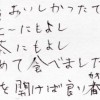 おいしかったで
ビールにもよし
茶にもよし
めて食べました
を開けば良い香